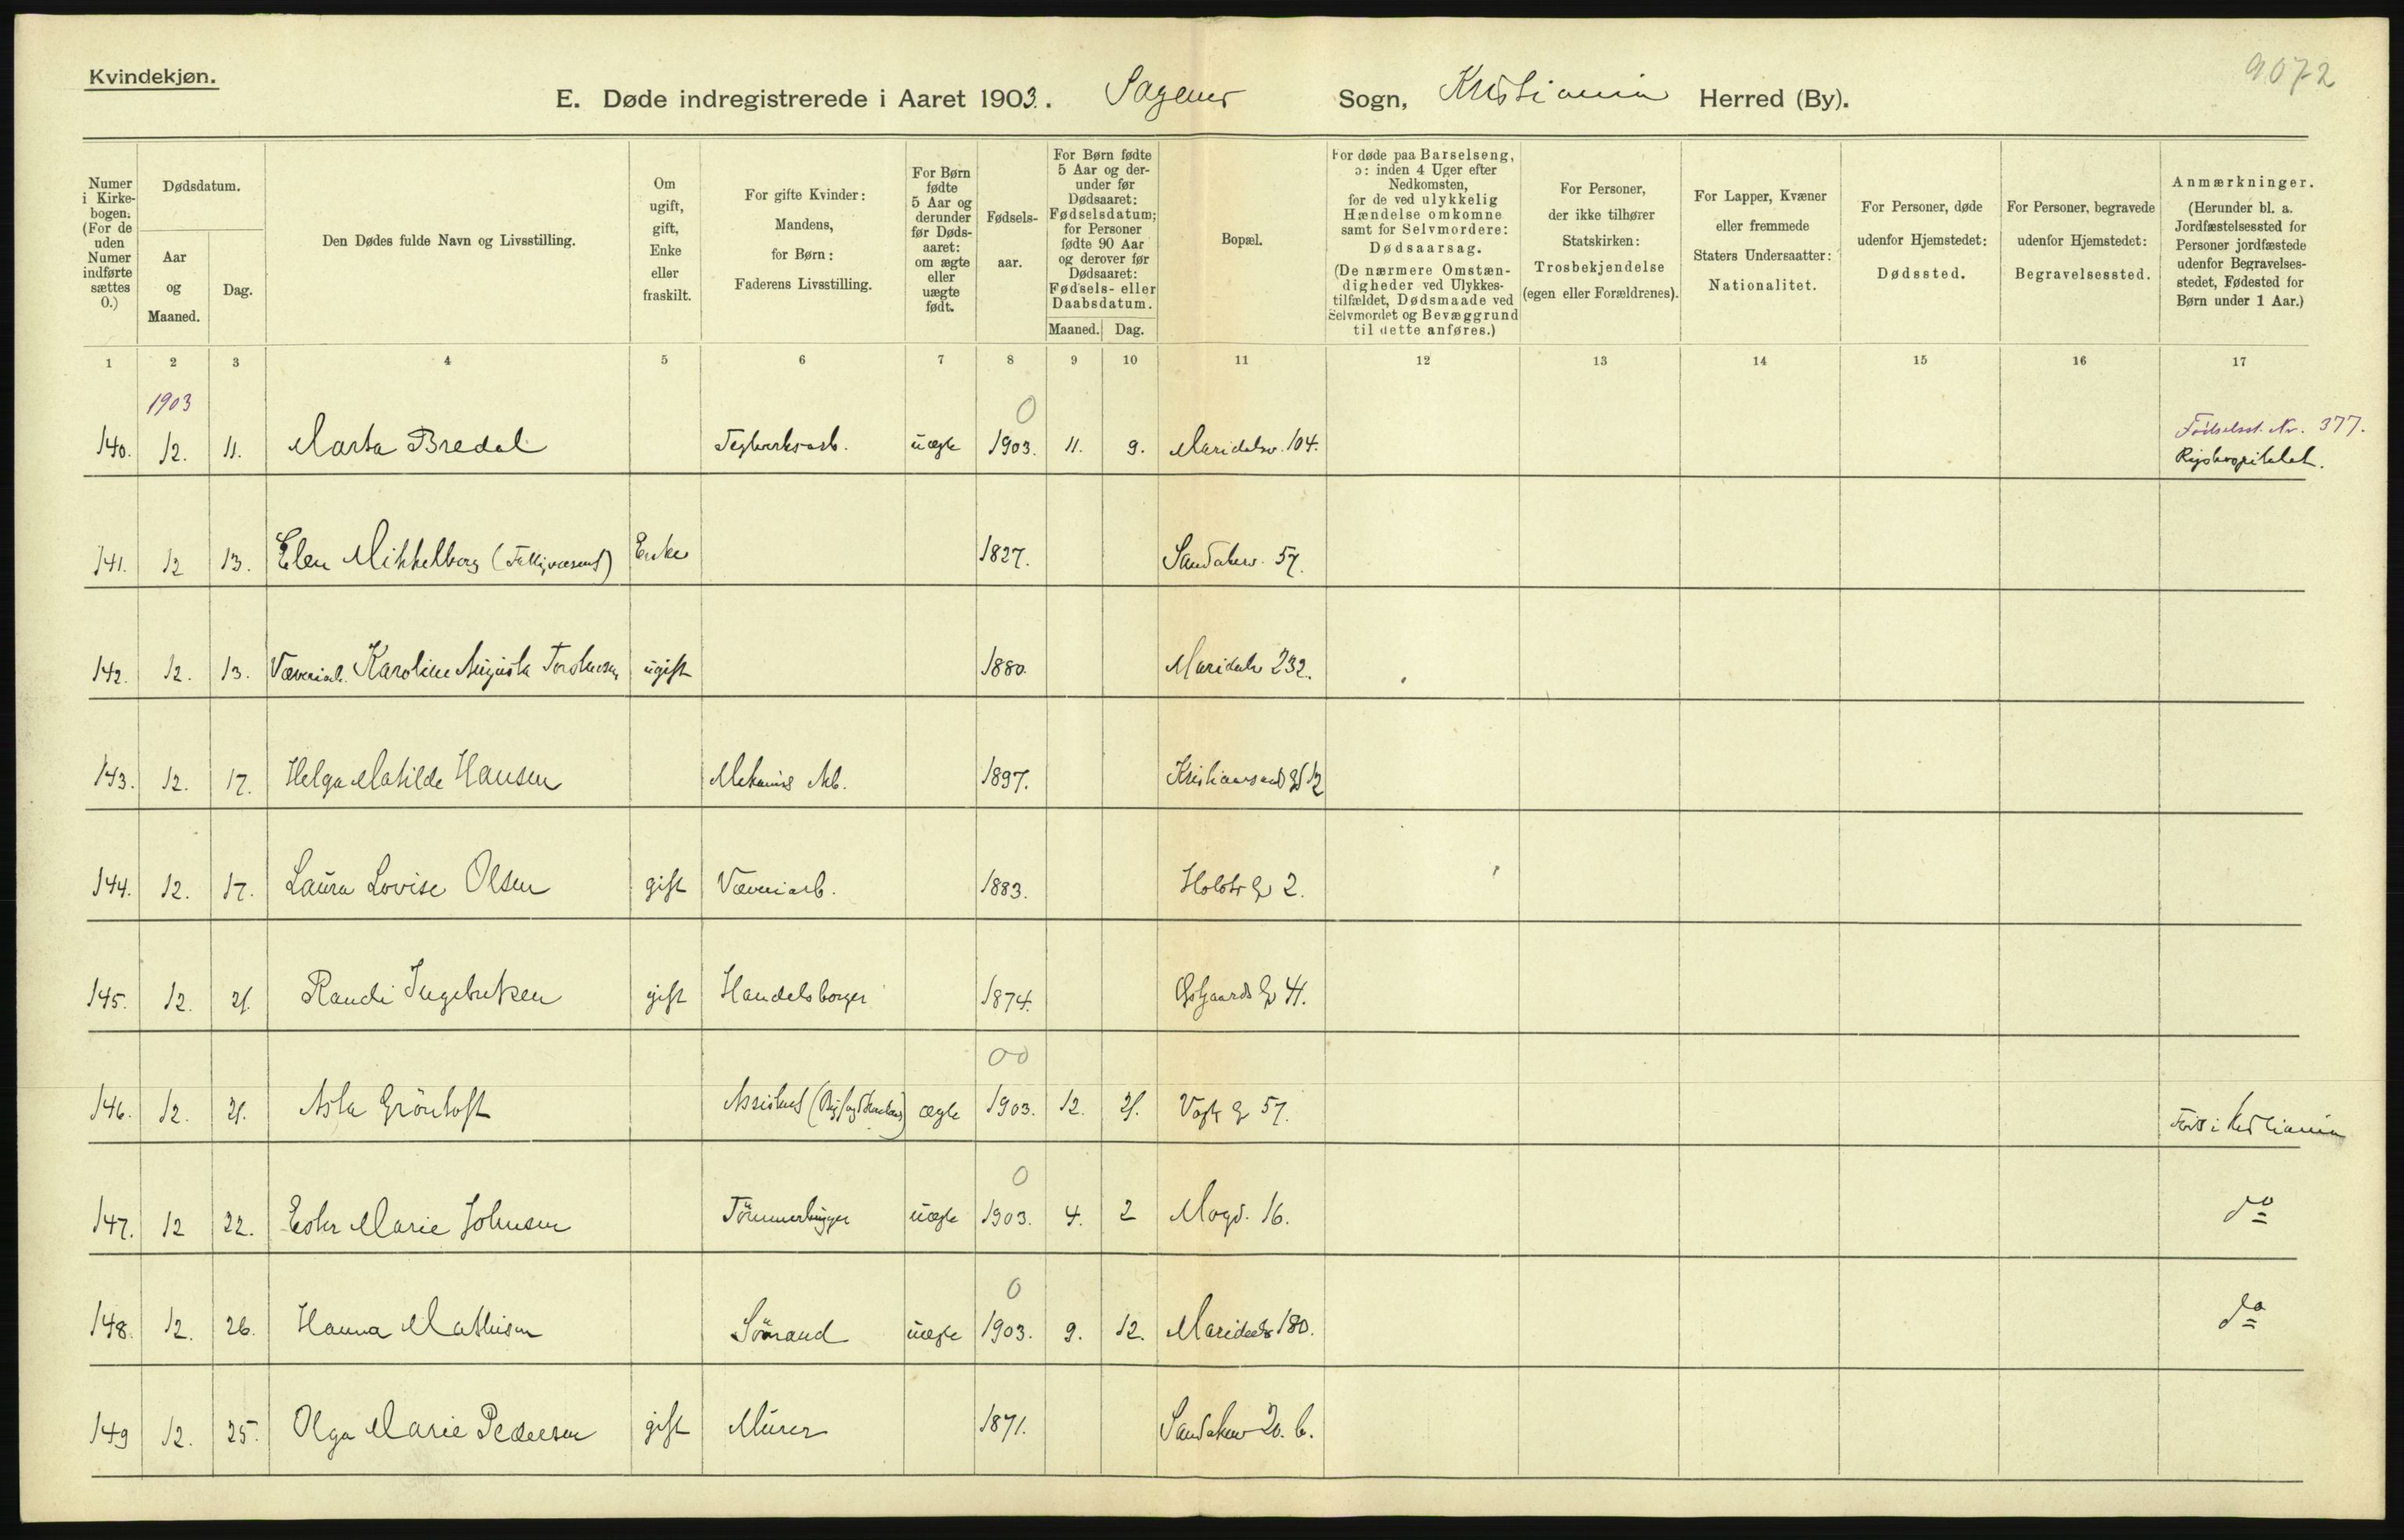 Kvindekjøn.
9072
E. Døde indregistrerede i Aaret 1903. Sagenes Sogn, Kristiania Herred (By).
Numer i Kirkebogen. (For de uden Numer indførte sættes 0.)
Dødsdatum.
Aar og Maaned.
Dag.
Den Dødes fulde Navn og Livsstilling.
Om ugift, gift, Enke eller fraskilt.
For gifte Kvinder: Mandens, for Børn: Faderens Livsstilling.
For Børn fødte 5 Aar og derunder før Dødsaaret: om ægte eller uægte født.
Fødselsaar.
For Børn fødte 5 Aar og derunder før Dødsaaret: Fødselsdatum; for Personer fødte 90 Aar og derover før Dødsaaret: Fødsels- eller Daabsdatum.
Maaned. Dag.
Bopæl.
For døde paa Barselseng, ɔ: inden 4 Uger efter Nedkomsten, for de ved ulykkelig Hændelse omkomne samt for Selvmordere: Dødsaarsag. (De nærmere Omstændigheder ved Ulykkestilfældet, Dødsmaade ved Selvmordet og Bevæggrund til dette anføres.)
For Personer, der ikke tilhører Statskirken: Trosbekjendelse (egen eller Forældrenes).
For Lapper, Kvæner eller fremmede Staters Undersaatter: Nationalitet.
For Personer, døde udenfor Hjemstedet: Dødssted.
For Personer, begravede udenfor Hjemstedet: Begravelsessted.
Anmærkninger. (Herunder bl. a. Jordfæstelsessted for Personer jordfæstede udenfor Begravelsesstedet, Fødested for Børn under 1 Aar.)
1 2 3 4 5 6 7 8 9 10 11 12 13 14 15 16 17
1903 0 Fødselsst. Nr. 377.
140. 12. 11. Marta Bredal Teglverksarb. uægte 1903. 11. 9. Maridalsv. 104. Rigshospitalet.
141. 12 13. Elen Mikkelborg (Fattigvæsent) Enke 1827. Sandakerv. 57.
142. 12. 13. Væveriarb. Karoline Augusta Torstensen ugift 1880. Maridalsv 232.
143. 12. 17. Helga Matilde Hansen Mekanisk Arb. 1897. Kristiansands g 12
144. 12. 17. Laura Lovise Olsen gift Væveriarb. 1883. Holsts g 2.
145. 12. 21. Randi Ingebretsen gift Handelsborger 1874. Østgaards g 41.
00
146. 12. 21. Asta Grönloft Assistent ægte 1903. 12. 21. Vogts g 57. Född i Kristiania
0
147. 12 22. Ester Marie Johnsen Tömmerhugger uægte 1903. 4. 2 Mogd. 16. do
0
148. 12. 26. Hanna Mathisen Sömand uægte 1903. 9. 12. Maridals 180. do
149 12. 25. Olga Marie Pedersen gift Murer 1871. Sandakerv 20. b.